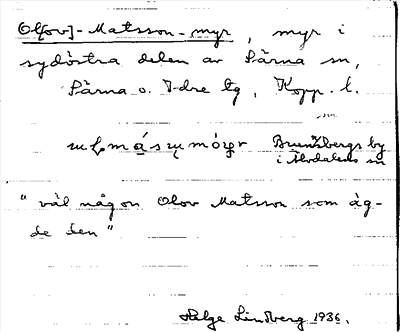 Ol[ov]-Matsson-myr, myr i
sydöstra delen av Särna sn,
Särna o. Idre tg, Kopp. l.
Brunnbergs by
i Älvdalens sn
"väl någon Olov Matsson som äg-
de den"
Helge Lindberg 1936.